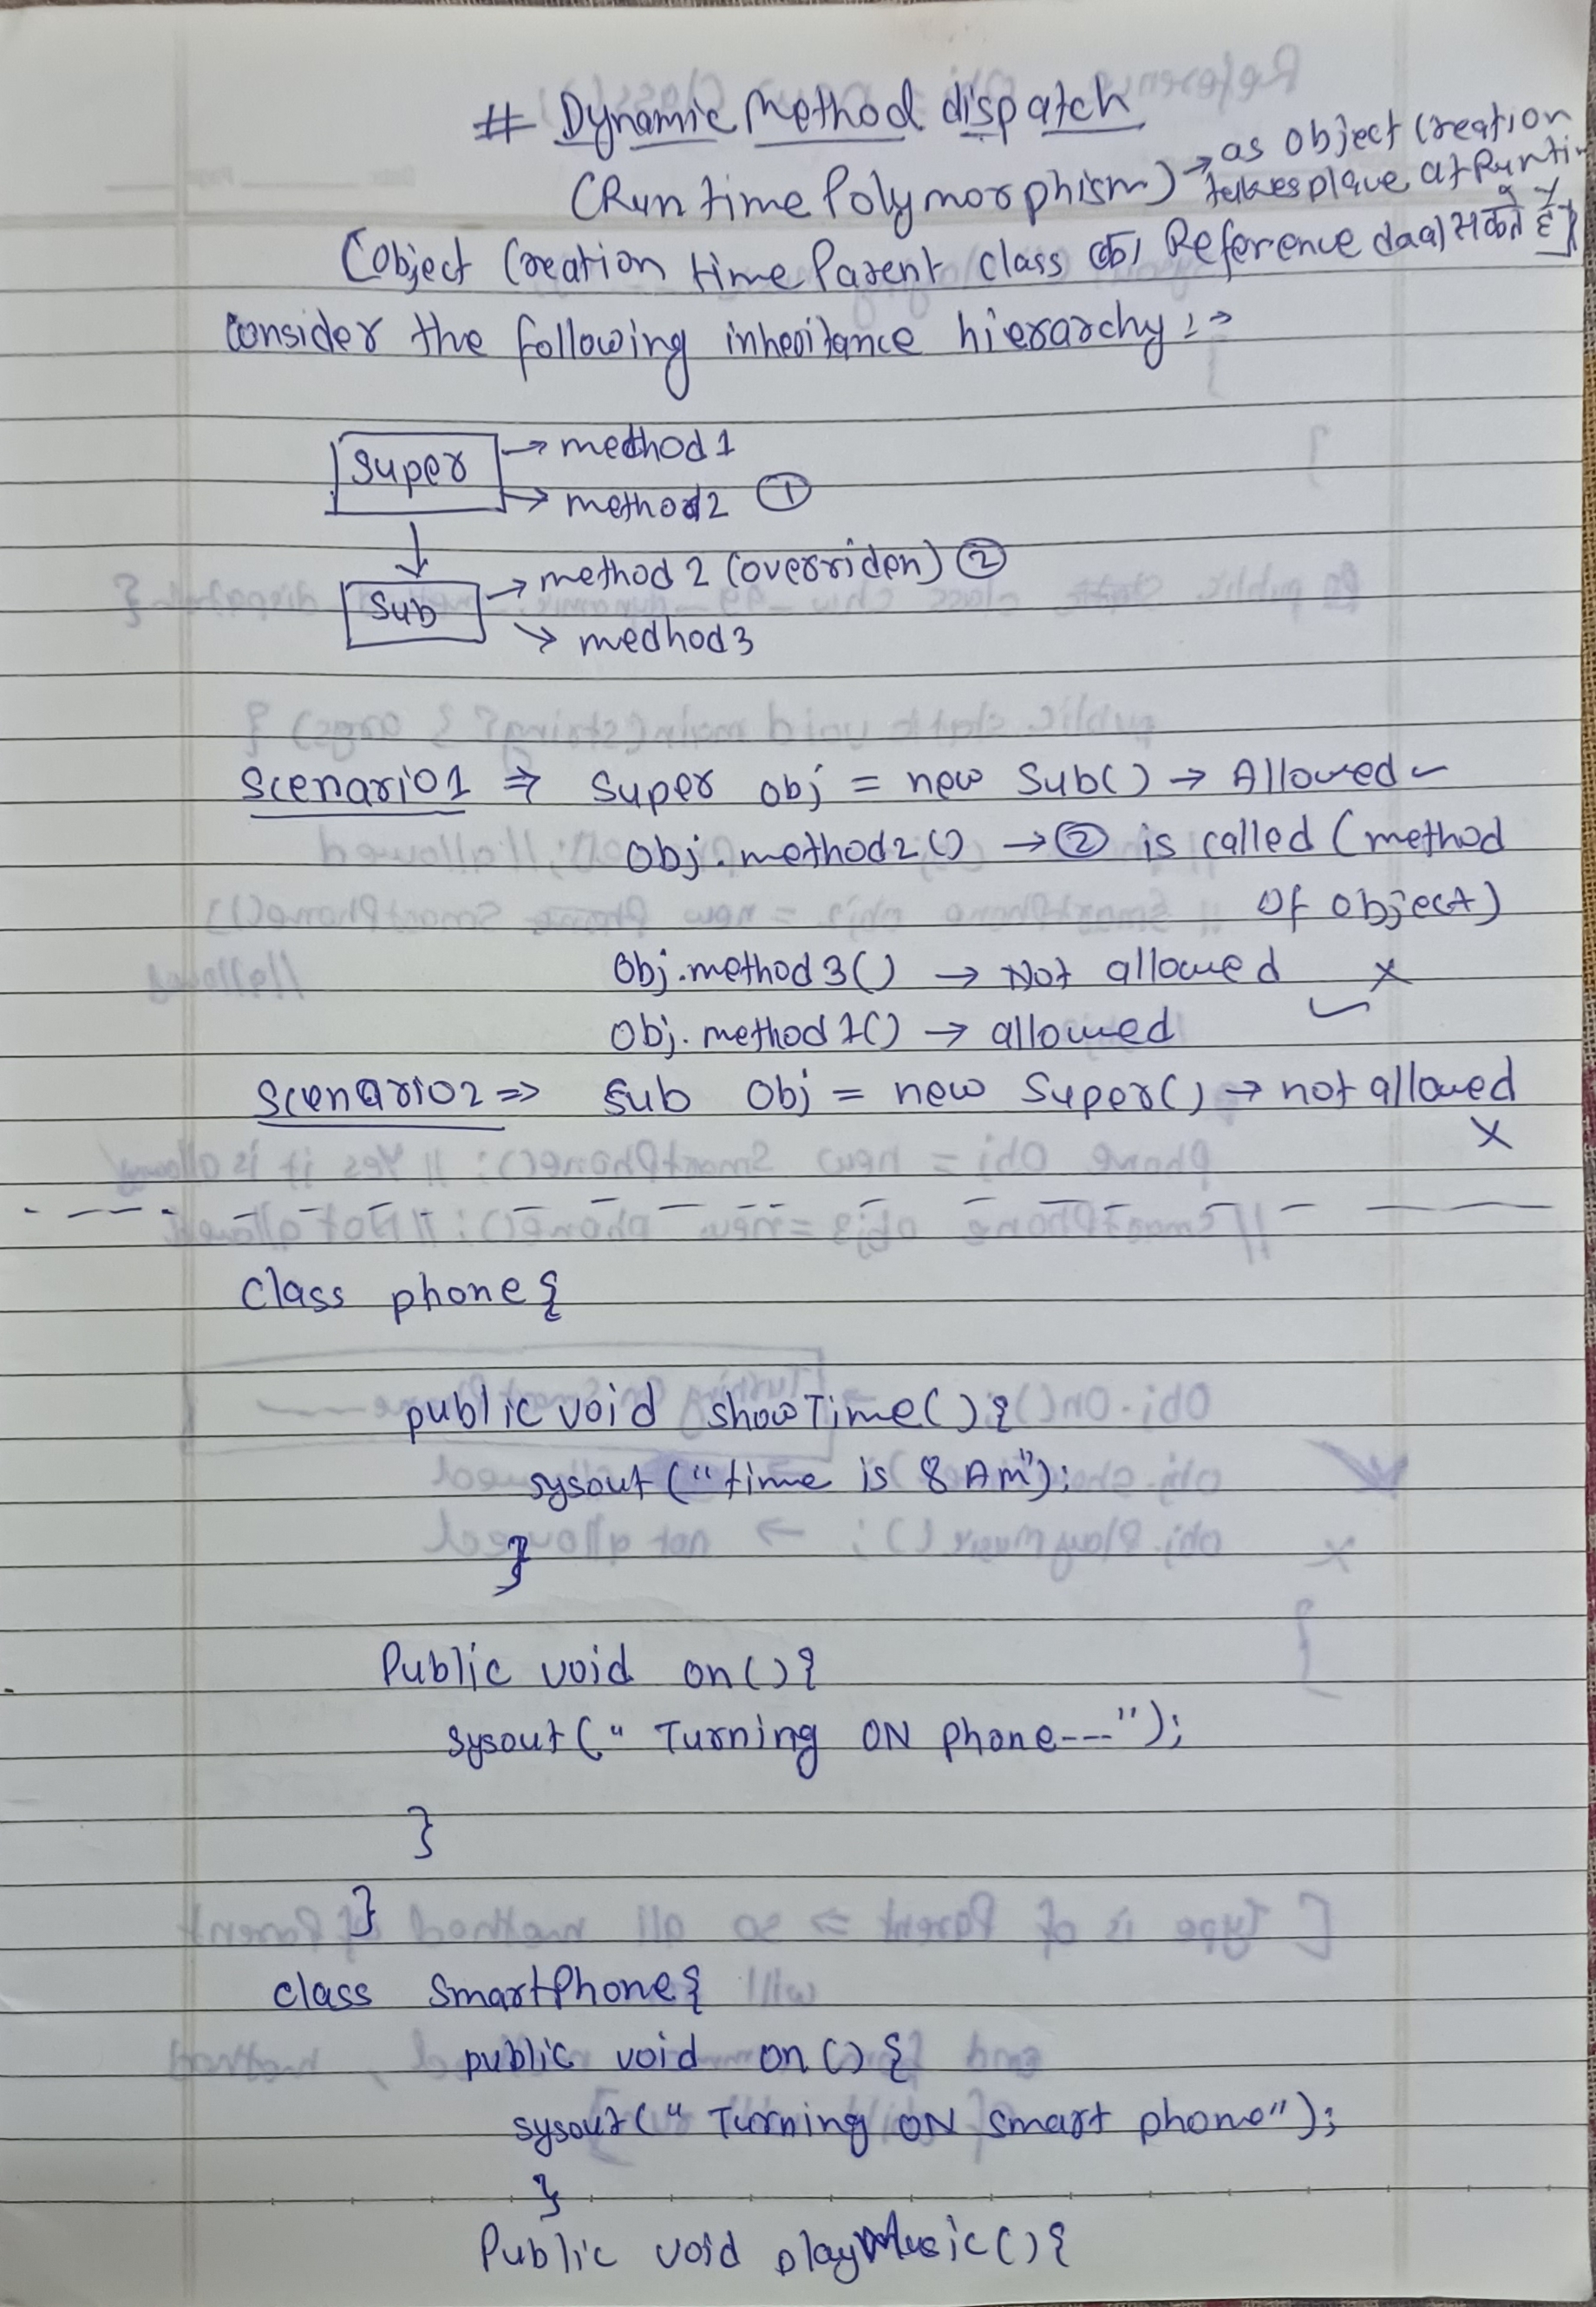 # Dynamic Method dispatch
(Run time Polymorphism) → as object creation
takes place at Runti
[object Creation time Parent class का Reference daal सकते हैं]
Consider the following inheritance hierarchy :→
Super → method 1
→ method2 ①
↓
Sub → method 2 (overriden) ②
→ medhod3
Scenario1 ⇒ Super obj = new Sub() → Allowed ✓
Obj.method2() → ② is called (method
Of object)
Obj.method3() → Not allowed ×
Obj.method1() → allowed ✓
Scenario2 => Sub Obj = new Super() → not allowed
×
Class phone{
public void showTime(){
sysout("time is 8 Am");
}
Public void on(){
sysout("Turning ON phone---");
}
}
class SmartPhone{
public void on(){
sysout("Turning ON Smart phone");
}
Public void playMusic(){